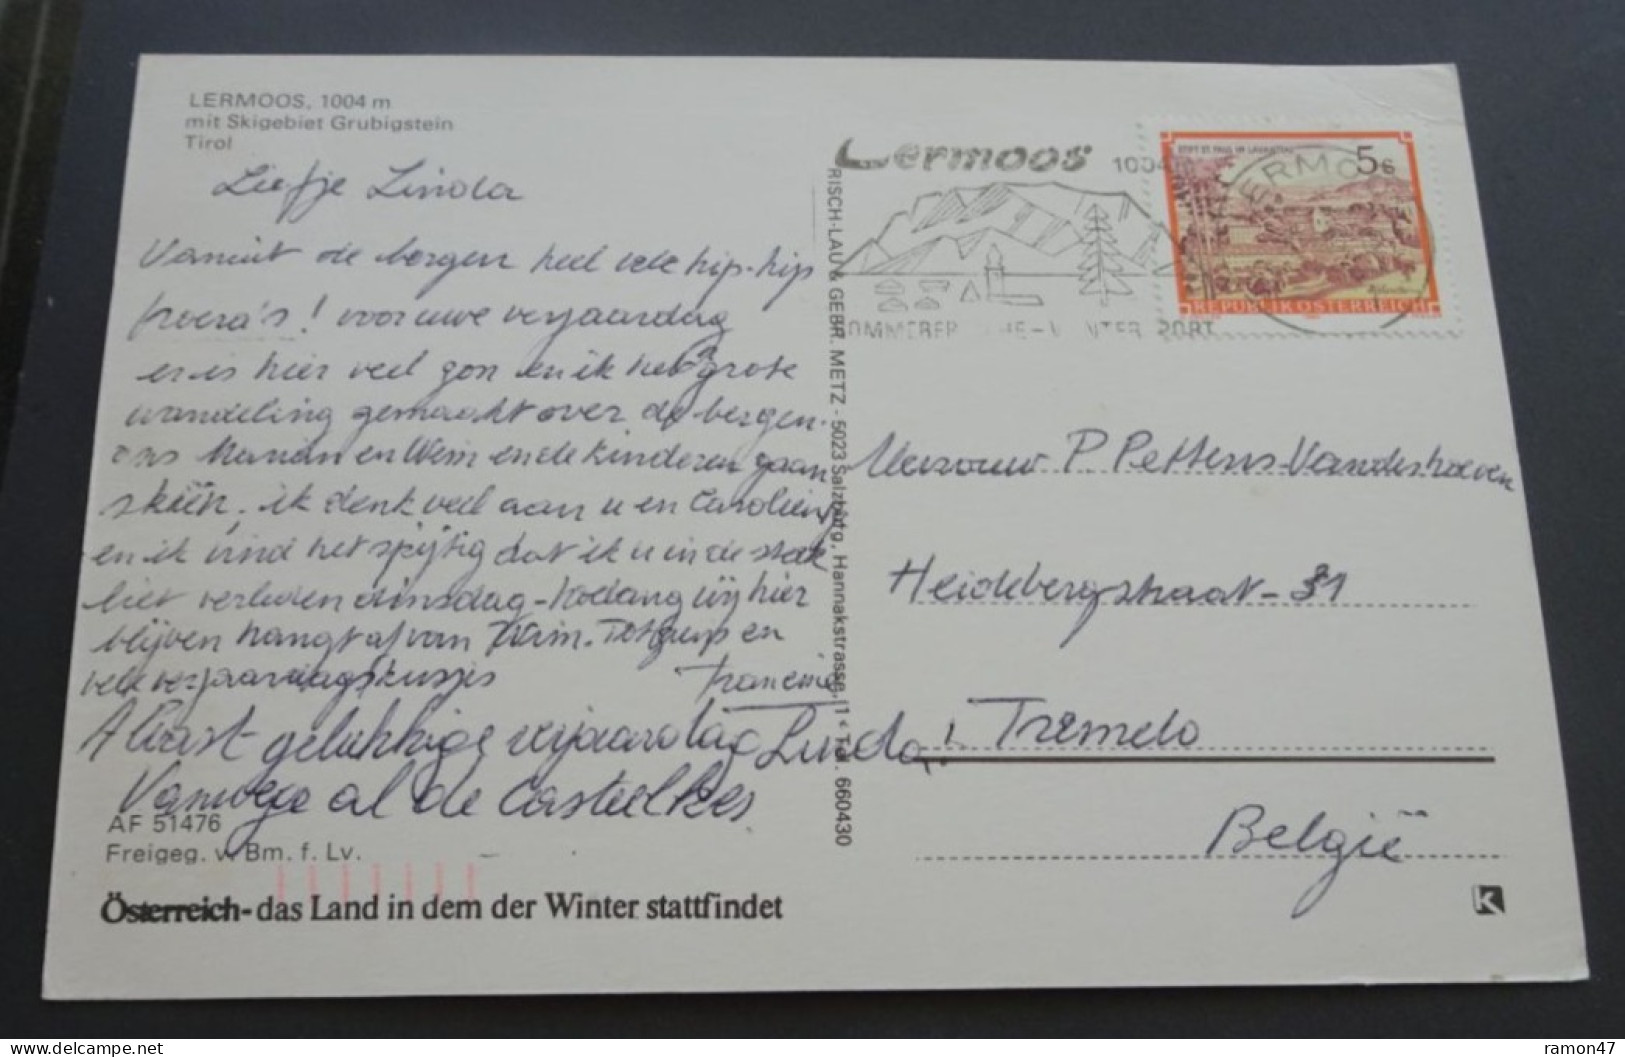 LERMOOS, 1004 m
mit Skigebiet Grubigstein
Tirol
Liefje Linda
Vanuit de bergen heel vele hip-hip
hoera's! voor uwe verjaardag
er is hier veel zon en ik heb grote
wandeling gemaakt over de bergen.
ons Marian en Wim en de kinderen gaan
skiën. ik denk veel aan u en Carolien
en ik vind het spijtig dat ik u in de steek
liet verleden dinsdag - hoelang wij hier
blijven hangt af van Wim. Tot en
vele verjaardagskusjes Francine
Alvast gelukkige verjaardag Linda!
Vanwege al de Casteelkes
AF 51476
Freigeg. v. Bm. f. Lv.
Österreich - das Land in dem der Winter stattfindet
RISCH-LAU & GEBR. METZ - 5023 Salzburg, Hannakstrasse, Tel. 660430
Lermoos 1004
STIFT ST. PAUL IM LAVANTTAL
5 S
REPUBLIK ÖSTERREICH
Mevrouw P. Pettens-Vandeshoeven
Heidebergstraat - 31
Tremelo
België
K
ramon47